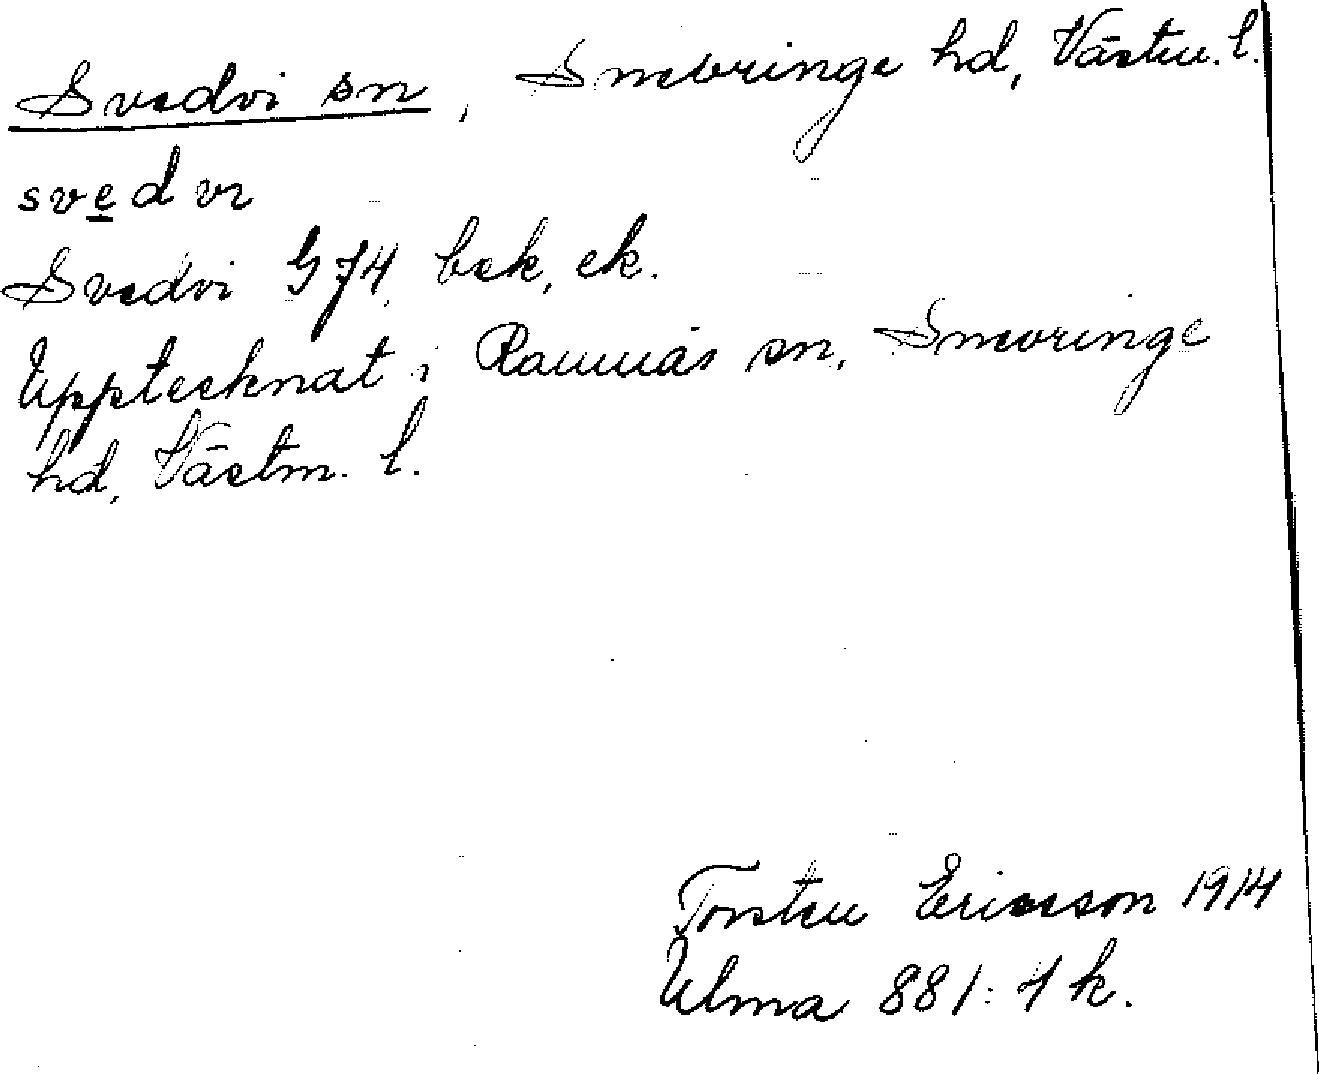 Svedvi sn, Snevringe hd, Västm. l.
svedvi
Svedvi G74, bek, ek.
Upptecknat i Ramnäs sn, Snevringe
hd, Västm. l.
Torsten Ericsson 1914
Ulma 881:1 k.